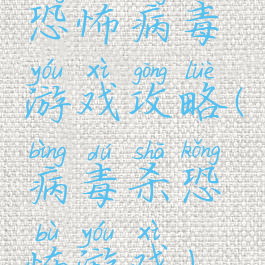 恐怖病毒
yóu xì gōng lüè
游戏攻略(
bìng dú shā kǒng
病毒杀恐
bù yóu xì
怖游戏)